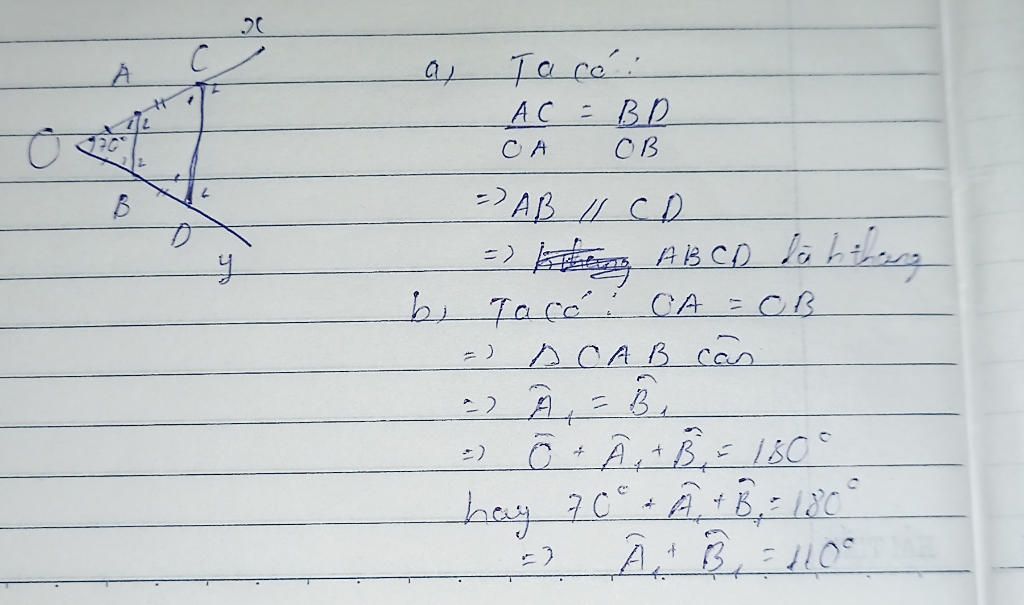 x
C
A
O
70°
B
D
y
1 2
1 2
1 2
1 2
a, Ta có:
AC/OA = BD/OB
=> AB // CD
=> ABCD là hthang
b, Ta có: OA = OB
=> Δ OAB cân
=> Â₁ = B̂₁
=> Ô + Â₁ + B̂₁ = 180°
hay 70° + Â₁ + B̂₁ = 180°
=> Â₁ + B̂₁ = 110°